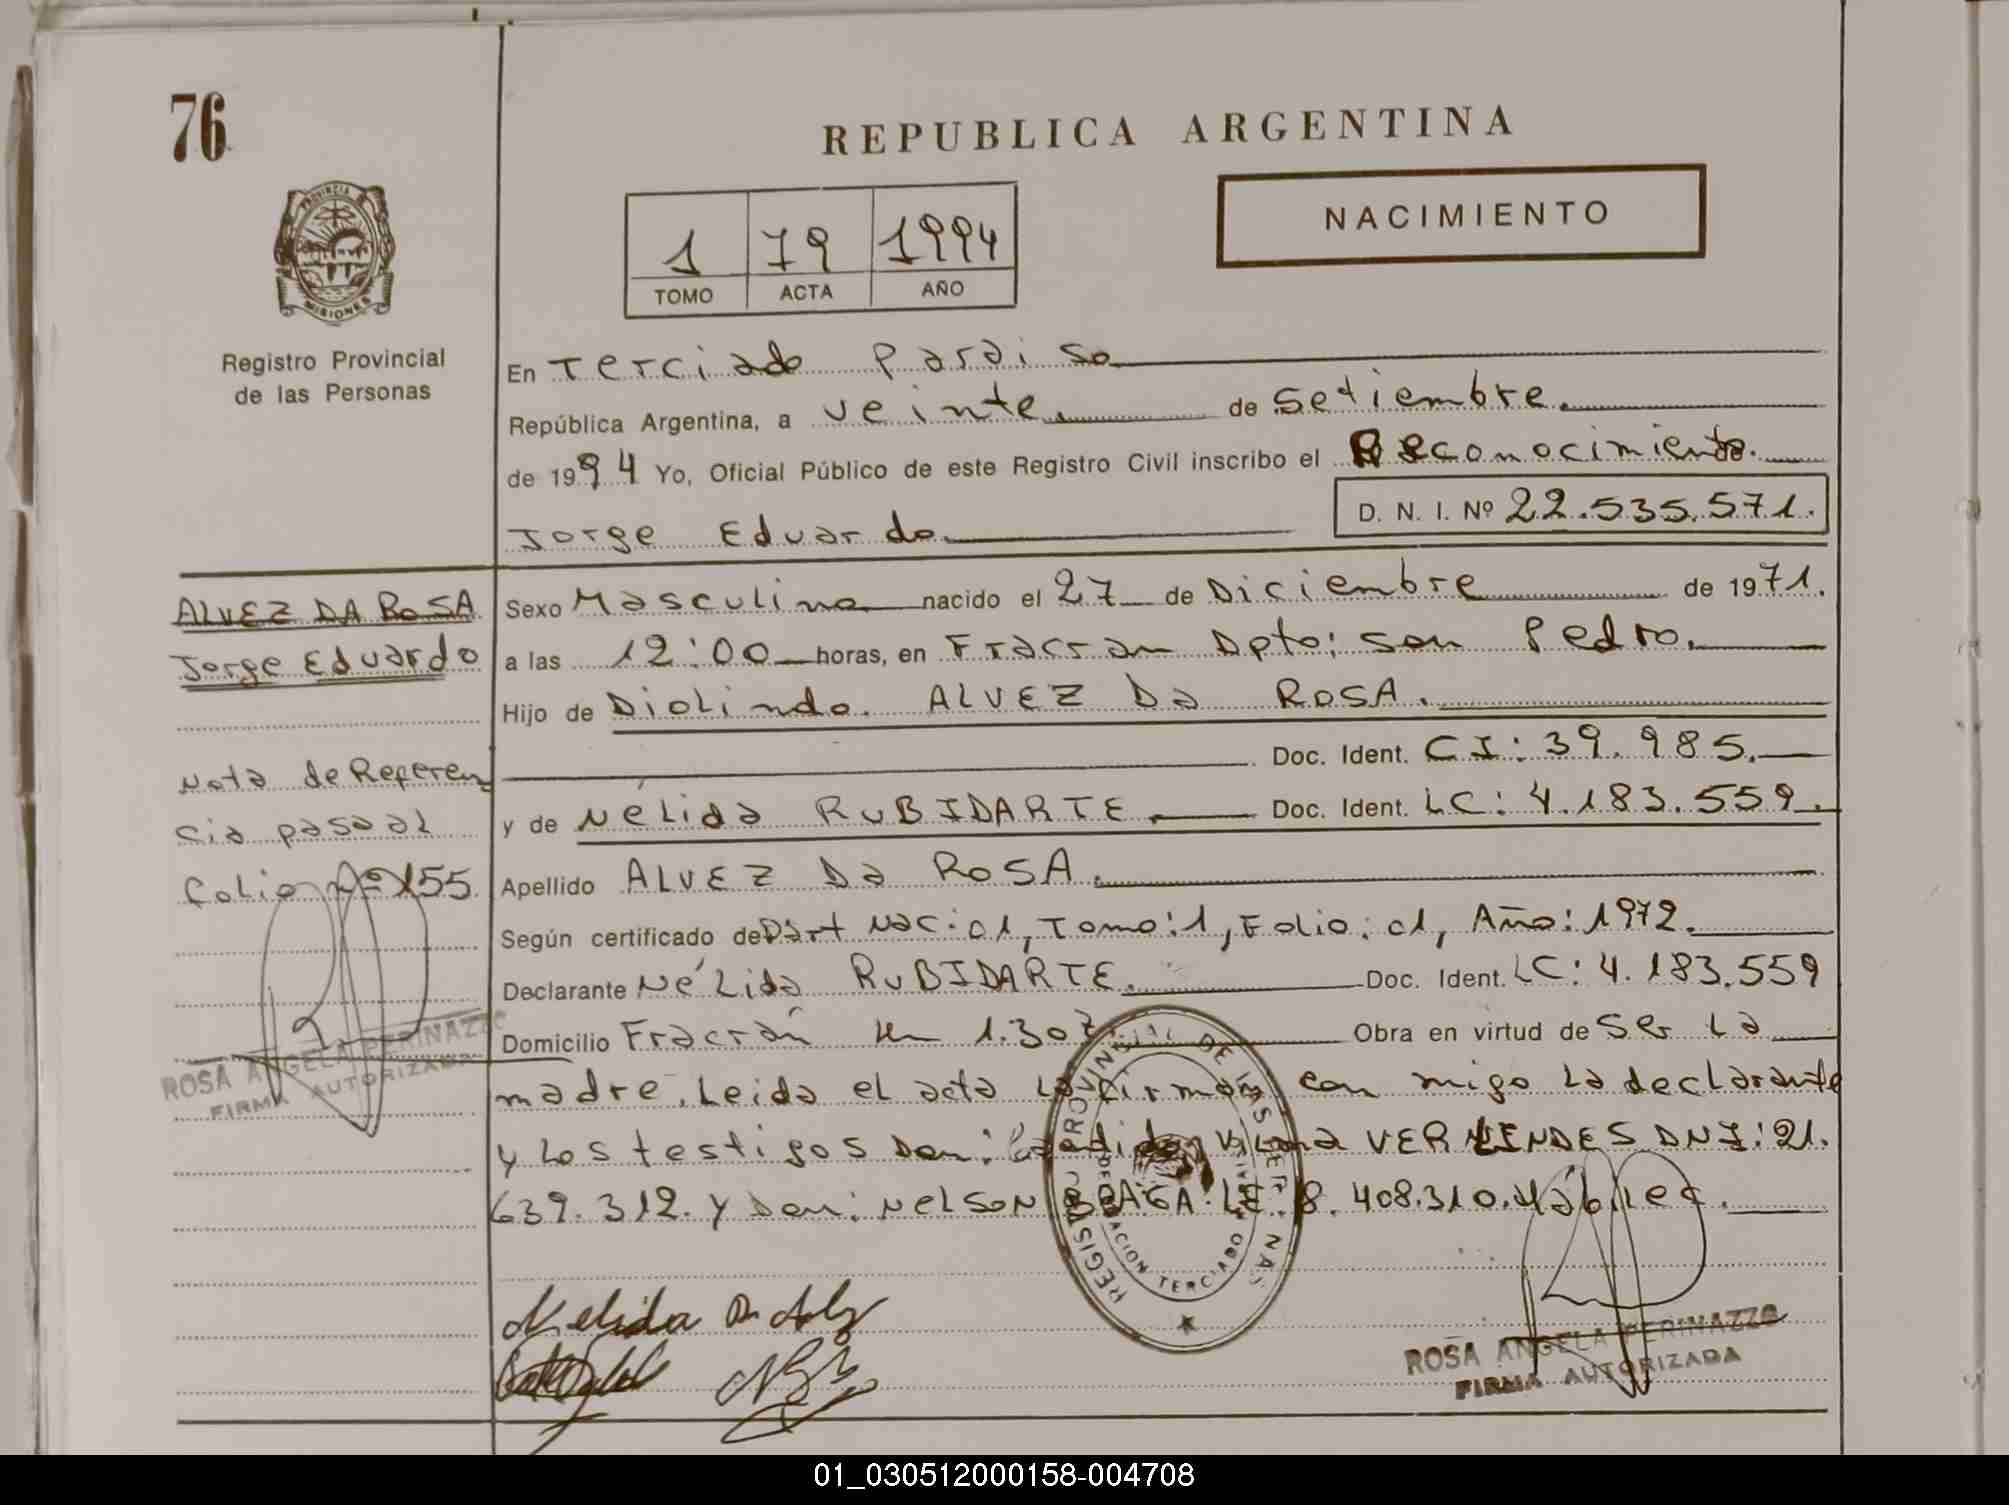 76
REPUBLICA ARGENTINA
NACIMIENTO
1 79 1994
TOMO ACTA AÑO
PROVINCIA
MISIONES
Registro Provincial
de las Personas
En Terciado Paraiso
República Argentina, a veinte. de Setiembre.
de 1994 Yo, Oficial Público de este Registro Civil inscribo el Reconocimiento.
D. N. I. Nº 22.535.571.
Jorge Eduardo.
ALVEZ DA ROSA
Jorge Eduardo
Sexo Masculino nacido el 27 de Diciembre de 1971.
a las 12:00 horas, en Fracran Dpto: San Pedro.
Hijo de Diolindo. ALVEZ Da ROSA.
Doc. Ident. CI: 39.985.
y de Nélida RUBIDARTE. Doc. Ident. LC: 4.183.559.
Apellido ALVEZ Da ROSA.
Nota de Referen
cia pasa al
Folio Nº 155
Según certificado de Part Naci 01, Tomo: 1, Folio: 01, Año: 1972.
Declarante Nélida RUBIDARTE. Doc. Ident. LC: 4.183.559
Domicilio Fracrán Km 1.307. Obra en virtud de Ser La
madre. Leida el acta la firman con migo La declarante
y Los testigos Don: VERLINDES DNI: 21.
639.312. y Don: NELSON BRAGA. LE. 8.408.310. Habiles.
ROSA ANGELA PERINAZZO
FIRMA AUTORIZADA
REGISTRO PROVINCIAL DE LAS PERSONAS
DELEGACION TERCIADO
Nelida
ROSA ANGELA PERINAZZO
FIRMA AUTORIZADA
01_030512000158-004708